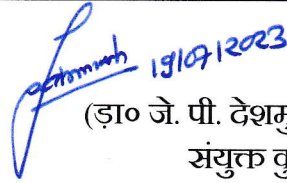 19/07/2023
(डा० जे. पी. देशमु
संयुक्त कु